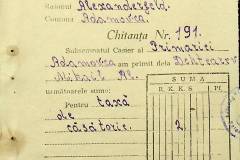 Raionul Alexanderfeld.
Comuna Adamovca.
Chitanța Nr. 191.
Subsemnatul Casier al Primariei
Adamovca am primit dela
Mihail Al.
următoarele sume:
Pentru taxă
de
căsătorie.
SUMA
R. K. K. S. P.
2